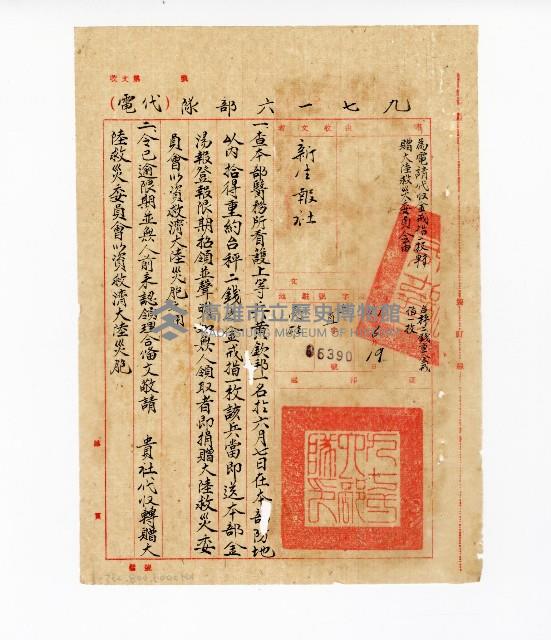 收文第 號
九七一六部隊(代電)
為電請代收金戒指一枚轉
贈大陸救災委員會由
台秤二錢重金戒
指一枚
新生報社
6390
19
一、查本部醫務所看護上等兵黃欽郎一名於六月七日在本部防地
以內拾得重約台秤二錢金戒指一枚該兵當即送本部金
湯報登報限期招領並聲明如無人領取者即捐贈大陸救災委
員會以資救濟大陸災胞
二、今已逾限期並無人前來認領理合備文敬請 貴社代收轉贈大
陸救災委員會以資救濟大陸災胞
高雄市立歷史博物館
KAOHSIUNG MUSEUM OF HISTORY
檔號